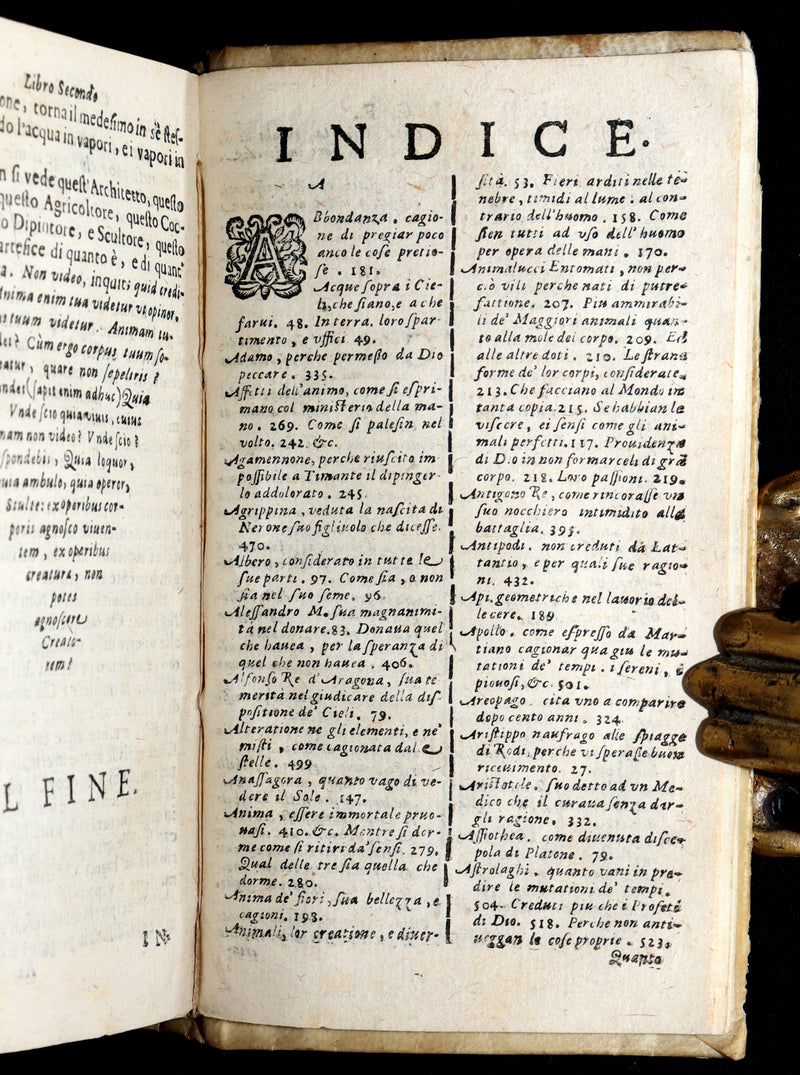 Libro Secondo
one, torna il medesimo in sè stes-
do l'acqua in vapori, e i vapori in
n si vede quest' Architetto, questo
questo Agricoltore, questo Coc-
o Dipintore, e Scultore, questo
artefice di quanto è, e di quant'
a. Non video, inquiti quid credi-
Anima enim tua videtur vt opinor,
s tuum videtur. Animam tu-
des? Cùm ergo corpus tuum so-
eatur, quare non sepeliris?
ndet (sapit enim adhuc) Quia
Vnde scio quia viuis, cuius
nam non video? Vnde scio?
spondebis, Quia loquor,
quia ambulo, quia operor,
Stulte: ex operibus cor-
poris agnosco viuen-
tem, ex operibus
creatura, non
potes
agnoscere
Creato-
rem?
L FINE.
IN-
INDICE.
A
Bbondanza. cagio-
ne di pregiar poco
anco le cose pretio-
se. 181.
Acque sopra i Cie-
li, che siano, e a che
farui. 48. In terra. loro spar-
timento, e vffici 49.
Adamo, perche permesso da Dio
peccare. 335.
Affetti dell'animo, come si espri-
mano col ministerio della ma-
no. 269. Come si palesin nel
volto. 242. &c.
Agamennone, perche riuscito im
possibile a Timante il dipinger-
lo addolorato. 245
Agrippina, veduta la nascita di
Nerone suo figliuolo che dicesse.
470.
Albero, considerato in tutte le
sue parti. 97. Come sia, o non
sia nel suo seme. 96.
Alessandro M. sua magnanimi-
tà nel donare. 83. Donaua quel
che hauea, per la speranza di
quel che non hauea. 406.
Alfonso Re d'Aragona, sua te
merità nel giudicare della dis-
positione de' Cieli. 79.
Alteratione ne gli elementi, e ne'
misti, come cagionata dal e
stelle. 499
Anassagora, quanto vago di ve-
dere il Sole. 147.
Anima, essere immortale pruo-
uasi. 410. &c. Mentre si dor-
me come si ritiri da' sensi. 279.
Qual delle tre sia quella che
dorme. 280.
Anima de' fiori, sua bellezza, e
cagioni. 198.
Animali, lor creatione, e diuer-
sità. 53. Fieri arditi nelle te-
nebre, timidi al lume: al con-
trario dell'huomo. 158. Come
sien tutti ad vso dell'huomo
per opera delle mani. 170.
Animalucci Entomati, non per-
ciò vili perche nati di putre-
fattione. 207. Piu ammirabi-
li de' Maggiori animali quan-
to alla mole del corpo. 209. Ed
alle altre doti. 210. Le strane
forme de' lor corpi, considerate.
213. Che facciano al Mondo in
tanta copia. 215. Se habbian le
viscere, ei sensi come gli ani-
mali perfetti. 117. Prouidenza
di Dio in non formarceli di grã
corpo. 218. Loro passioni. 219.
Antigono Re, come rincorasse vn
suo nocchiero intimidito alla
battaglia. 395.
Antipodi. non creduti da Lat-
tantio, e per quali sue ragio-
ni. 432.
Api, geometriche nel lauorio del-
le cere. 189
Apollo. come espresso da Mar-
tiano cagionar qua giu le mu-
tationi de' tempi. i sereni, e
piouosi, &c. 501.
Areopago. cita vno a comparire
dopo cento anni. 324
Aristippo naufrago alle spiagge
di Rodi, perche vi sperasse buon
riceuimento. 27.
Aristotele. suo detto ad vn Me-
dico che il curaua senza dar-
gli ragione. 332.
Assiothea. come diuentuta disce-
pola di Platone. 79.
Astrolaghi. quanto vani in pre-
dire le mutationi de' tempi.
504. Creduti piu che i Profeti
di Dio. 518. Perche non anti-
ueggan le cose proprie. 523.
Quanto